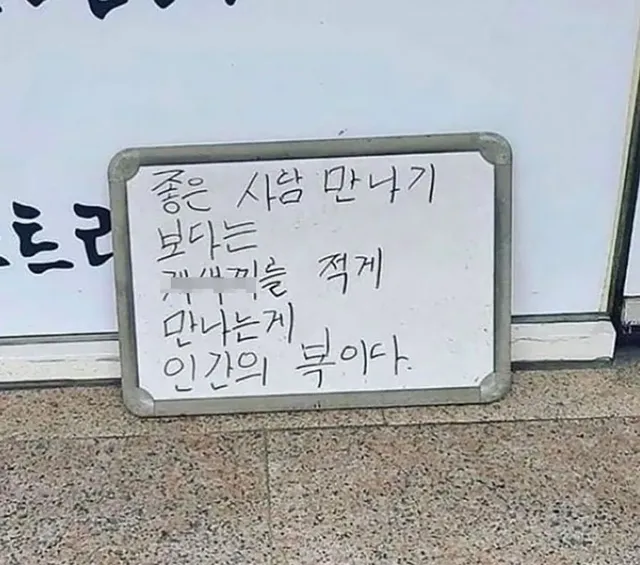 좋은 사람 만나기
보다는
를 적게
만나는게
인간의 복이다.